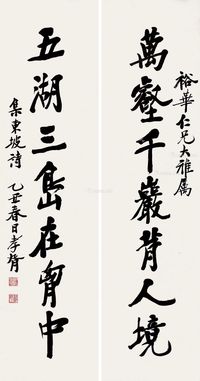 裕華仁兄大雅属
萬壑千巖背人境
五湖三島在胷中
集東坡詩 乙丑春日孝胥